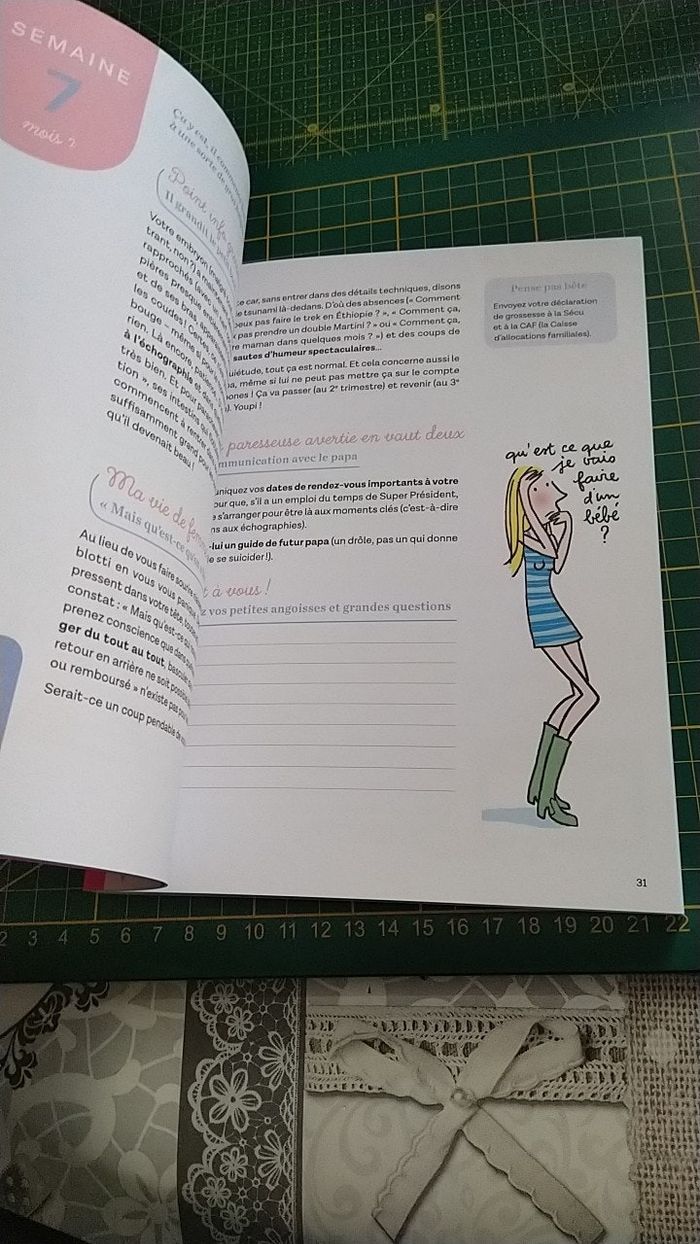 SEMAINE
7
mois 2
Ça y est, il commence
à une sorte de
Point info
Il grandit le
Votre embryon
trant, non ?) a
rapprochés (avec un
pières presque
et de ses bras
les coudes ! Certes,
bouge – même si
rien. Là encore,
à l'échographie et
très bien. Et pour
tion », ses intestins qui
commencent à rentrer dans
suffisamment grand pour
qu'il devenait beau !
Ma vie de
« Mais qu'est-ce
Au lieu de vous faire
blotti en vous vous
pressent dans votre tête,
constat : « Mais qu'est-ce
prenez conscience que dans
ger du tout au tout,
retour en arrière ne soit
ou remboursé » n'existe pas
Serait-ce un coup pendable de
ce car, sans entrer dans des détails techniques, disons
le tsunami là-dedans. D'où des absences (« Comment
peux pas faire le trek en Éthiopie ? », « Comment ça,
pas prendre un double Martini ? » ou « Comment ça,
re maman dans quelques mois ? ») et des coups de
sautes d'humeur spectaculaires...
uiétude, tout ça est normal. Et cela concerne aussi le
pa, même si lui ne peut pas mettre ça sur le compte
ones ! Ça va passer (au 2e trimestre) et revenir (au 3e
). Youpi !
paresseuse avertie en vaut deux
mmunication avec le papa
uniquez vos dates de rendez-vous importants à votre
our que, s'il a un emploi du temps de Super Président,
s'arranger pour être là aux moments clés (c'est-à-dire
ns aux échographies).
-lui un guide de futur papa (un drôle, pas un qui donne
e se suicider !).
t à vous !
z vos petites angoisses et grandes questions
Pense pas bête
Envoyez votre déclaration
de grossesse à la Sécu
et à la CAF (la Caisse
d'allocations familiales).
qu'est ce que
je vais
faire
d'un
bébé
?
31
2 3 4 5 6 7 8 9 10 11 12 13 14 15 16 17 18 19 20 21 22